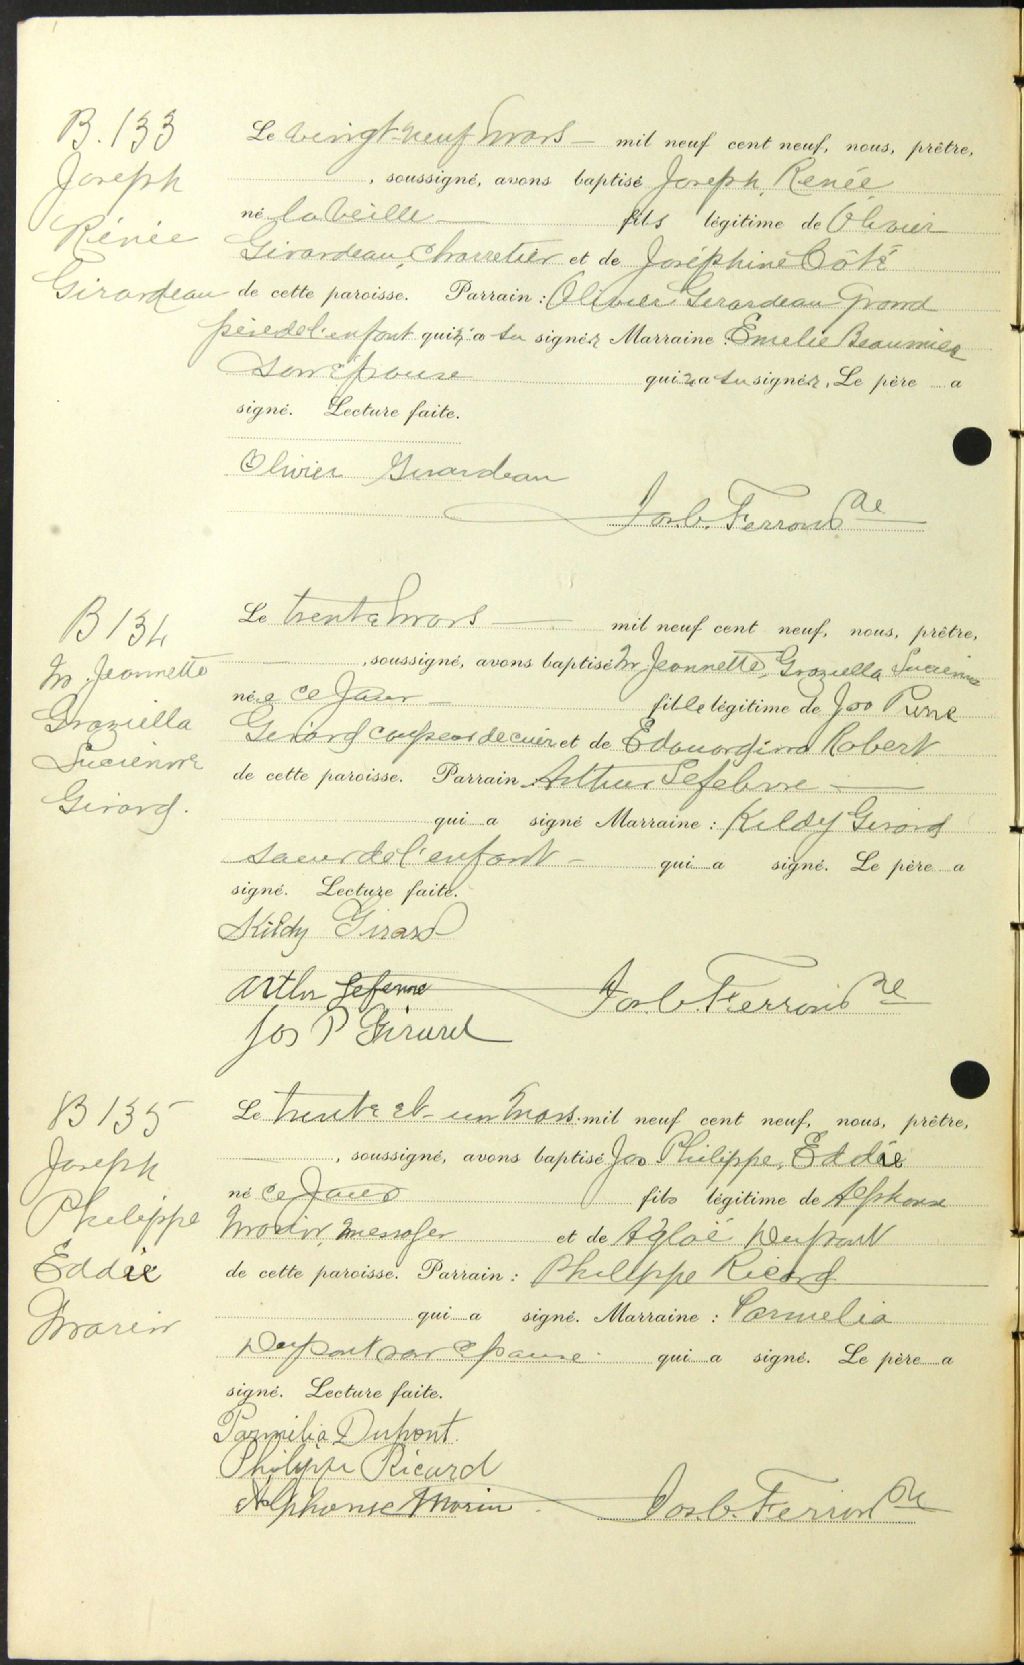 B. 133
Joseph
Rénée
Girardeau
Le vingt-neuf Mars — mil neuf cent neuf, nous, prêtre,
, soussigné, avons baptisé Joseph, Renée
né la veille — fils légitime de Olivier
Girardeau, Charretier et de Joséphine Côté
de cette paroisse. Parrain : Olivier Girardeau Grand
père de l'enfant qui n'a su signer Marraine : Emelie Beaumier
son épouse qui n a su signer. Le père a
signé. Lecture faite.
Olivier Girardeau
Jos. C. Ferron Ptre
B 134
M. Jeannette
Graziella
Lucienne
Girard.
Le trente Mars — mil neuf cent neuf, nous, prêtre,
, soussigné, avons baptisé M. Jeannette, Graziella Lucienne
née ce Jour — fille légitime de Jos Pierre
Girard coupeur de cuir et de Edouardina Robert
de cette paroisse. Parrain : Arthur Lefebvre —
qui a signé Marraine : Kildy Girard
soeur de l'enfant — qui a signé. Le père a
signé. Lecture faite.
Kildy Girard
Arthur
Jos. C. Ferron Ptre
Jos P Girard
B 135
Joseph
Philippe
Eddie
Morin
Le trente et un Mars mil neuf cent neuf, nous, prêtre,
, soussigné, avons baptisé Jos Philippe, Eddie
né ce Jour fils légitime de Alphonse
Morin, messager et de Agloé Dupont
de cette paroisse. Parrain : Philippe Ricard
qui a signé. Marraine : Parmelia
Dupont son épouse. qui a signé. Le père a
signé. Lecture faite.
Parmilia Dupont.
Philippe Ricard
Alphonse Morin
Jos. C. Ferron Ptre